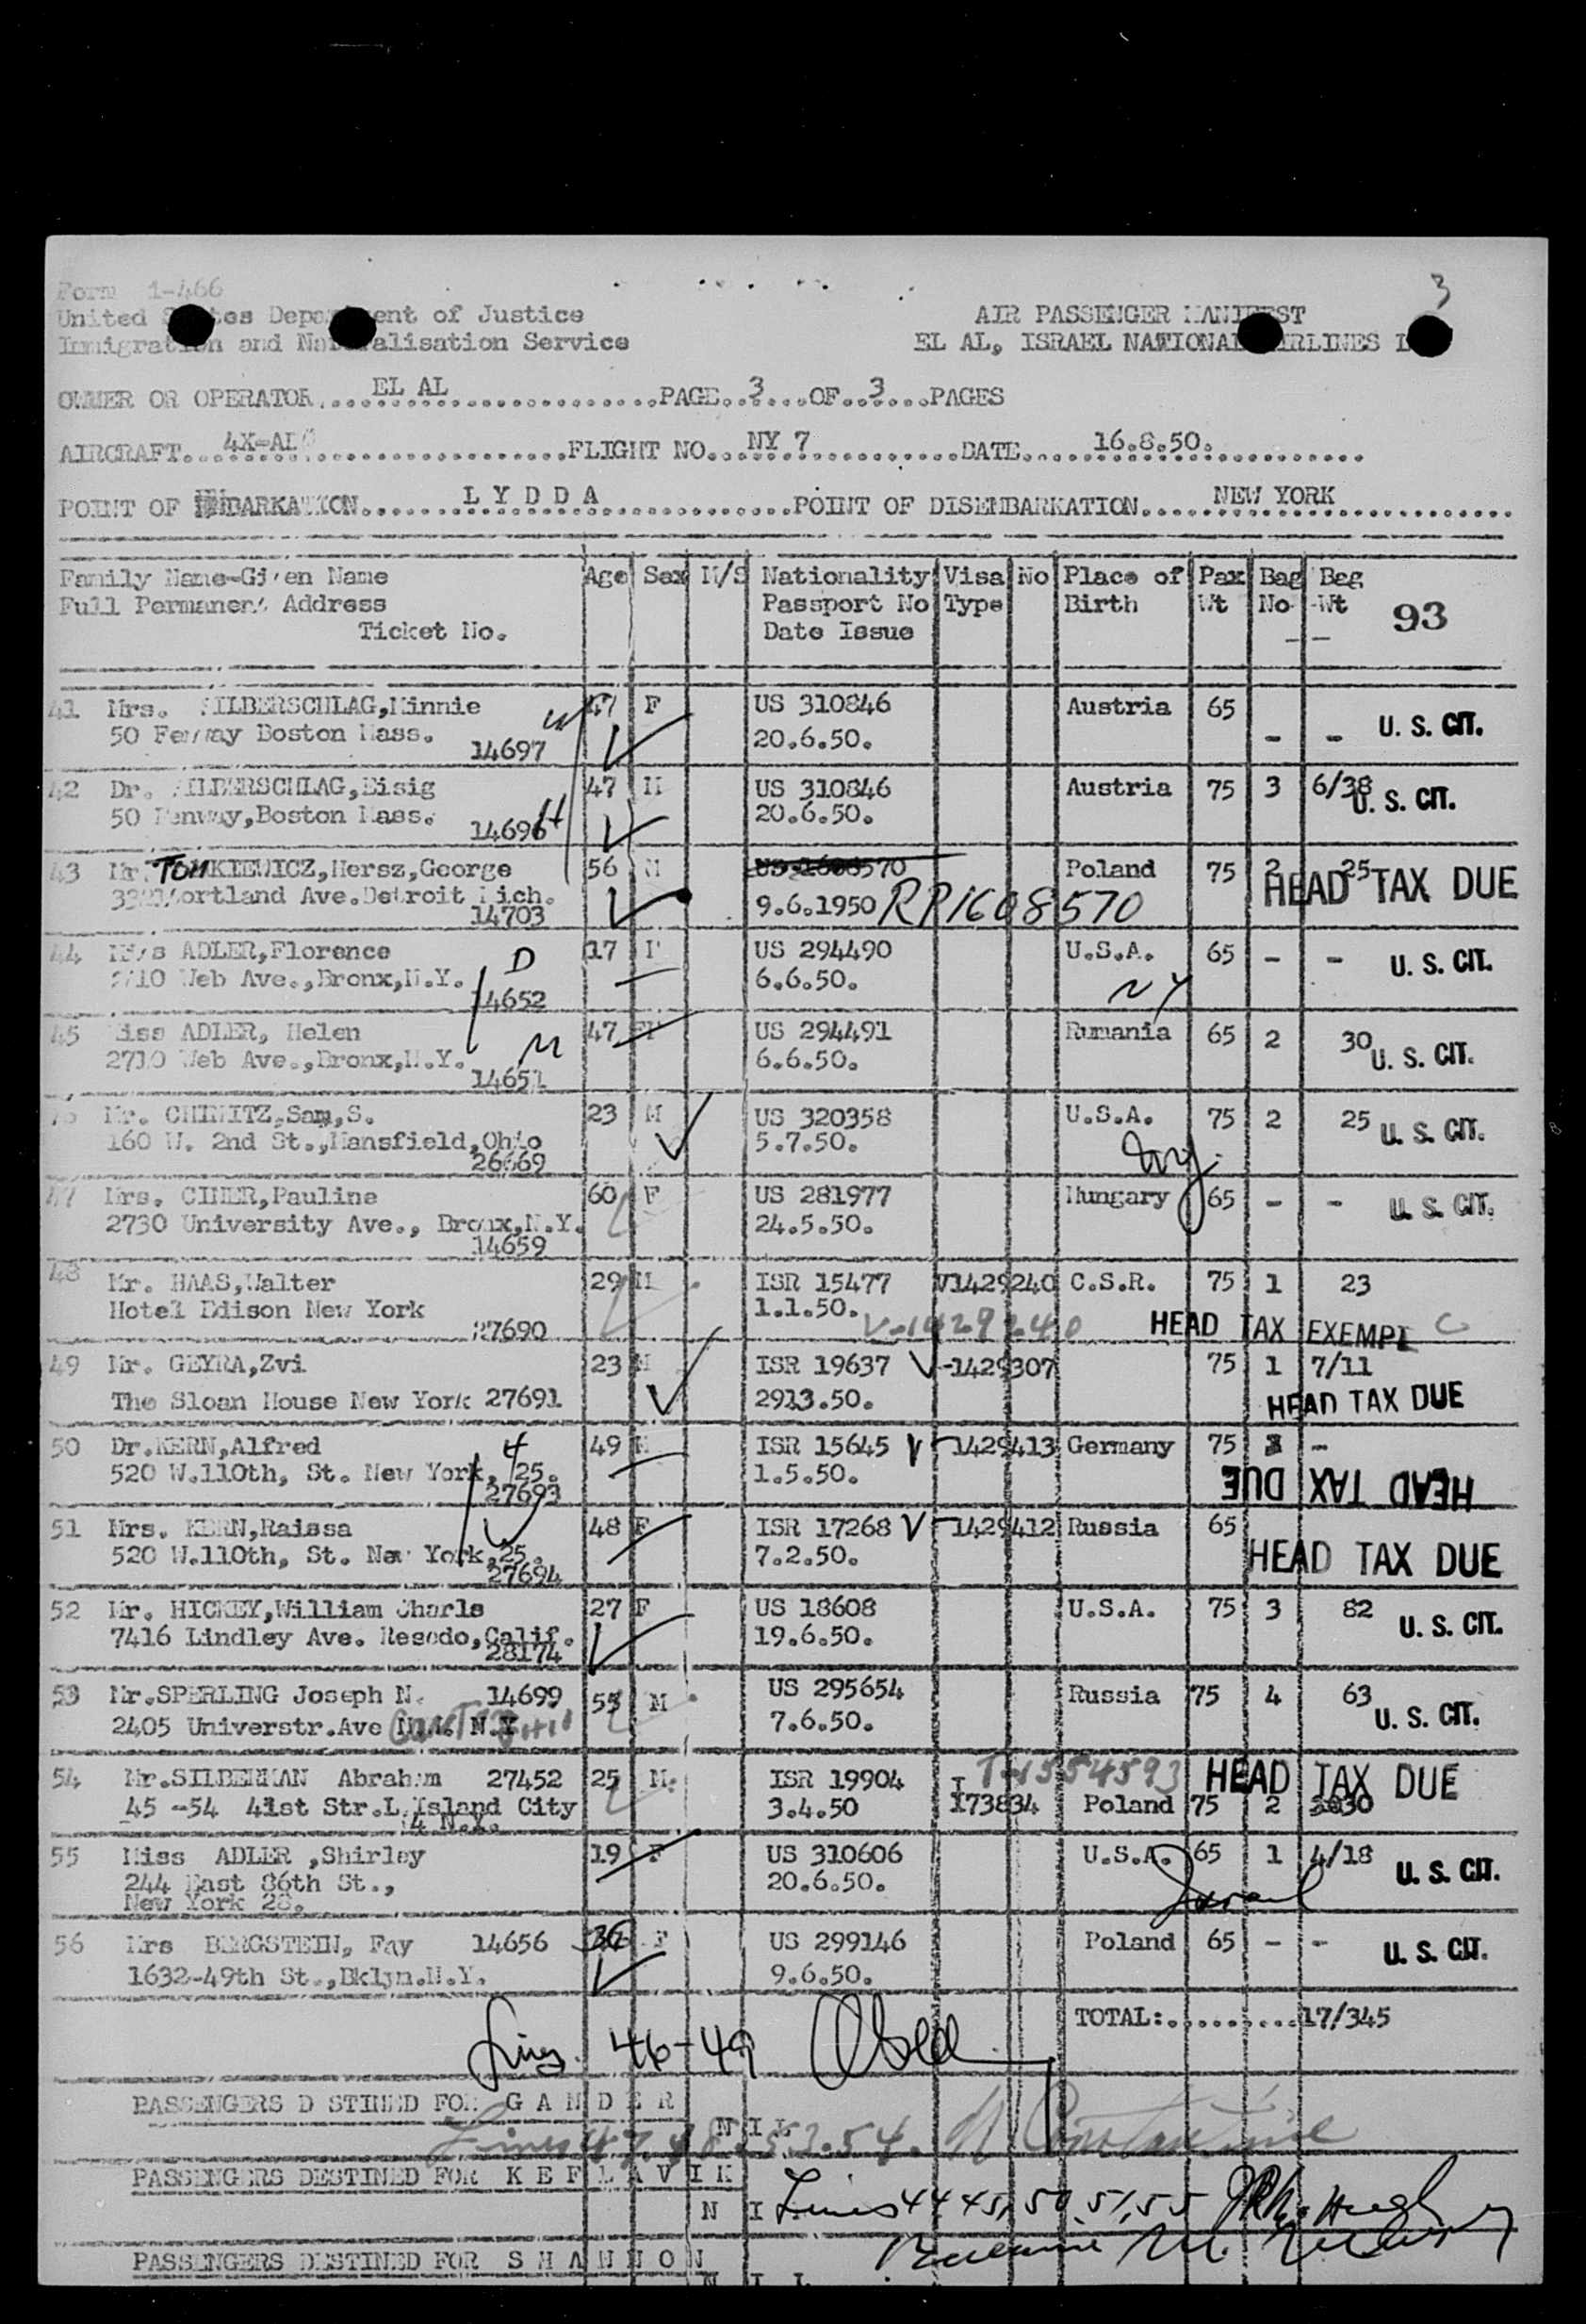 3
Form 1-466
United States Department of Justice
Immigration and Naturalisation Service
AIR PASSENGER MANIFEST
EL AL, ISRAEL NATIONAL AIRLINES
OWNER OR OPERATOR....EL AL....PAGE..3....OF..3....PAGES
AIRCRAFT....4X-AL....FLIGHT NO....NY 7....DATE....16.8.50.
POINT OF EMBARKATION....L Y D D A....POINT OF DISEMBARKATION....NEW YORK
Family Name-Given Name Age Sex M/S Nationality Visa No Place of Pax Bag Bag
Full Permanent Address Passport No Type Birth Wt No Wt 93
Ticket No. Date Issue
41 Mrs. SILBERSCHLAG,Minnie W 47 F US 310846 Austria 65
50 Fenway Boston Mass. 14697 20.6.50. - - U. S. CIT.
42 Dr. SILBERSCHLAG,Eisig 47 M US 310846 Austria 75 3 6/38
50 Fenway,Boston Mass. 14696 H 20.6.50. U. S. CIT.
43 Mr. TOMKIEWICZ,Hersz,George 56 M US 1608570 Poland 75 2 25
Cortland Ave.Detroit Mich. 9.6.1950 RP1608570 HEAD TAX DUE
14703
44 Miss ADLER,Florence D 17 F US 294490 U.S.A. 65 - - U. S. CIT.
2710 Web Ave.,Bronx,N.Y. 6.6.50. NY
14652
45 Miss ADLER, Helen 47 F US 294491 Rumania 65 2 30
2710 Web Ave.,Bronx,N.Y. M 6.6.50. U. S. CIT.
14651
46 Mr. CHIMITZ,Sam,S. 23 M US 320358 U.S.A. 75 2 25 U. S. CIT.
160 W. 2nd St.,Mansfield,Ohio 5.7.50.
26669
47 Mrs. CIMER,Pauline 60 F US 281977 Hungary 65 - - U. S. CIT.
2730 University Ave., Bronx,N.Y. 24.5.50.
14659
48 Mr. HAAS,Walter 29 M ISR 15477 V1429240 C.S.R. 75 1 23
Hotel Edison New York 1.1.50. V-1429240 HEAD TAX EXEMPT C
27690
49 Mr. GEYRA,Zvi 23 M ISR 19637 V-1429307 75 1 7/11
The Sloan House New York 27691 2913.50. HEAD TAX DUE
50 Dr.KERN,Alfred H 49 M ISR 15645 V-1429413 Germany 75 -
520 W.110th, St. New York, 25. 1.5.50. HEAD TAX DUE
27693
51 Mrs. KERN,Raissa W 48 F ISR 17268 V-1429412 Russia 65
520 W.110th, St. New York,25. 7.2.50. HEAD TAX DUE
27694
52 Mr. HICKEY,William Charls 27 F US 18608 U.S.A. 75 3 82 U. S. CIT.
7416 Lindley Ave. Resedo,Calif. 19.6.50.
28174
53 Mr.SPERLING Joseph N. 14699 55 M US 295654 Russia 75 4 63
2405 Universtr.Ave N.Y. 7.6.50. U. S. CIT.
54 Mr.SILBERMAN Abraham 27452 25 M. ISR 19904 T-1554593 HEAD TAX DUE
45 -54 41st Str.L.Island City 3.4.50 I73834 Poland 75 2 30
4 N.Y.
55 Miss ADLER ,Shirley 19 F US 310606 U.S.A. 65 1 4/18 U. S. CIT.
244 East 86th St., 20.6.50.
New York 28.
56 Mrs BERGSTEIN, Fay 14656 36 F US 299146 Poland 65 - - U. S. CIT.
1632-49th St.,Bklyn.N.Y. 9.6.50.
TOTAL:..........17/345
Lines. 46-49
PASSENGERS DESTINED FOR G A N D E R
N I L
Lines 47.48.53.54. Constantine
PASSENGERS DESTINED FOR K E F L A V I K
N I L
Lines 44 45, 50, 51, 55
PASSENGERS DESTINED FOR S H A N N O N
N I L